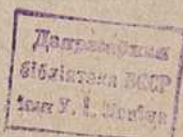 Дзяржаўная
бібліятэка БССР
імя У. І. Леніна